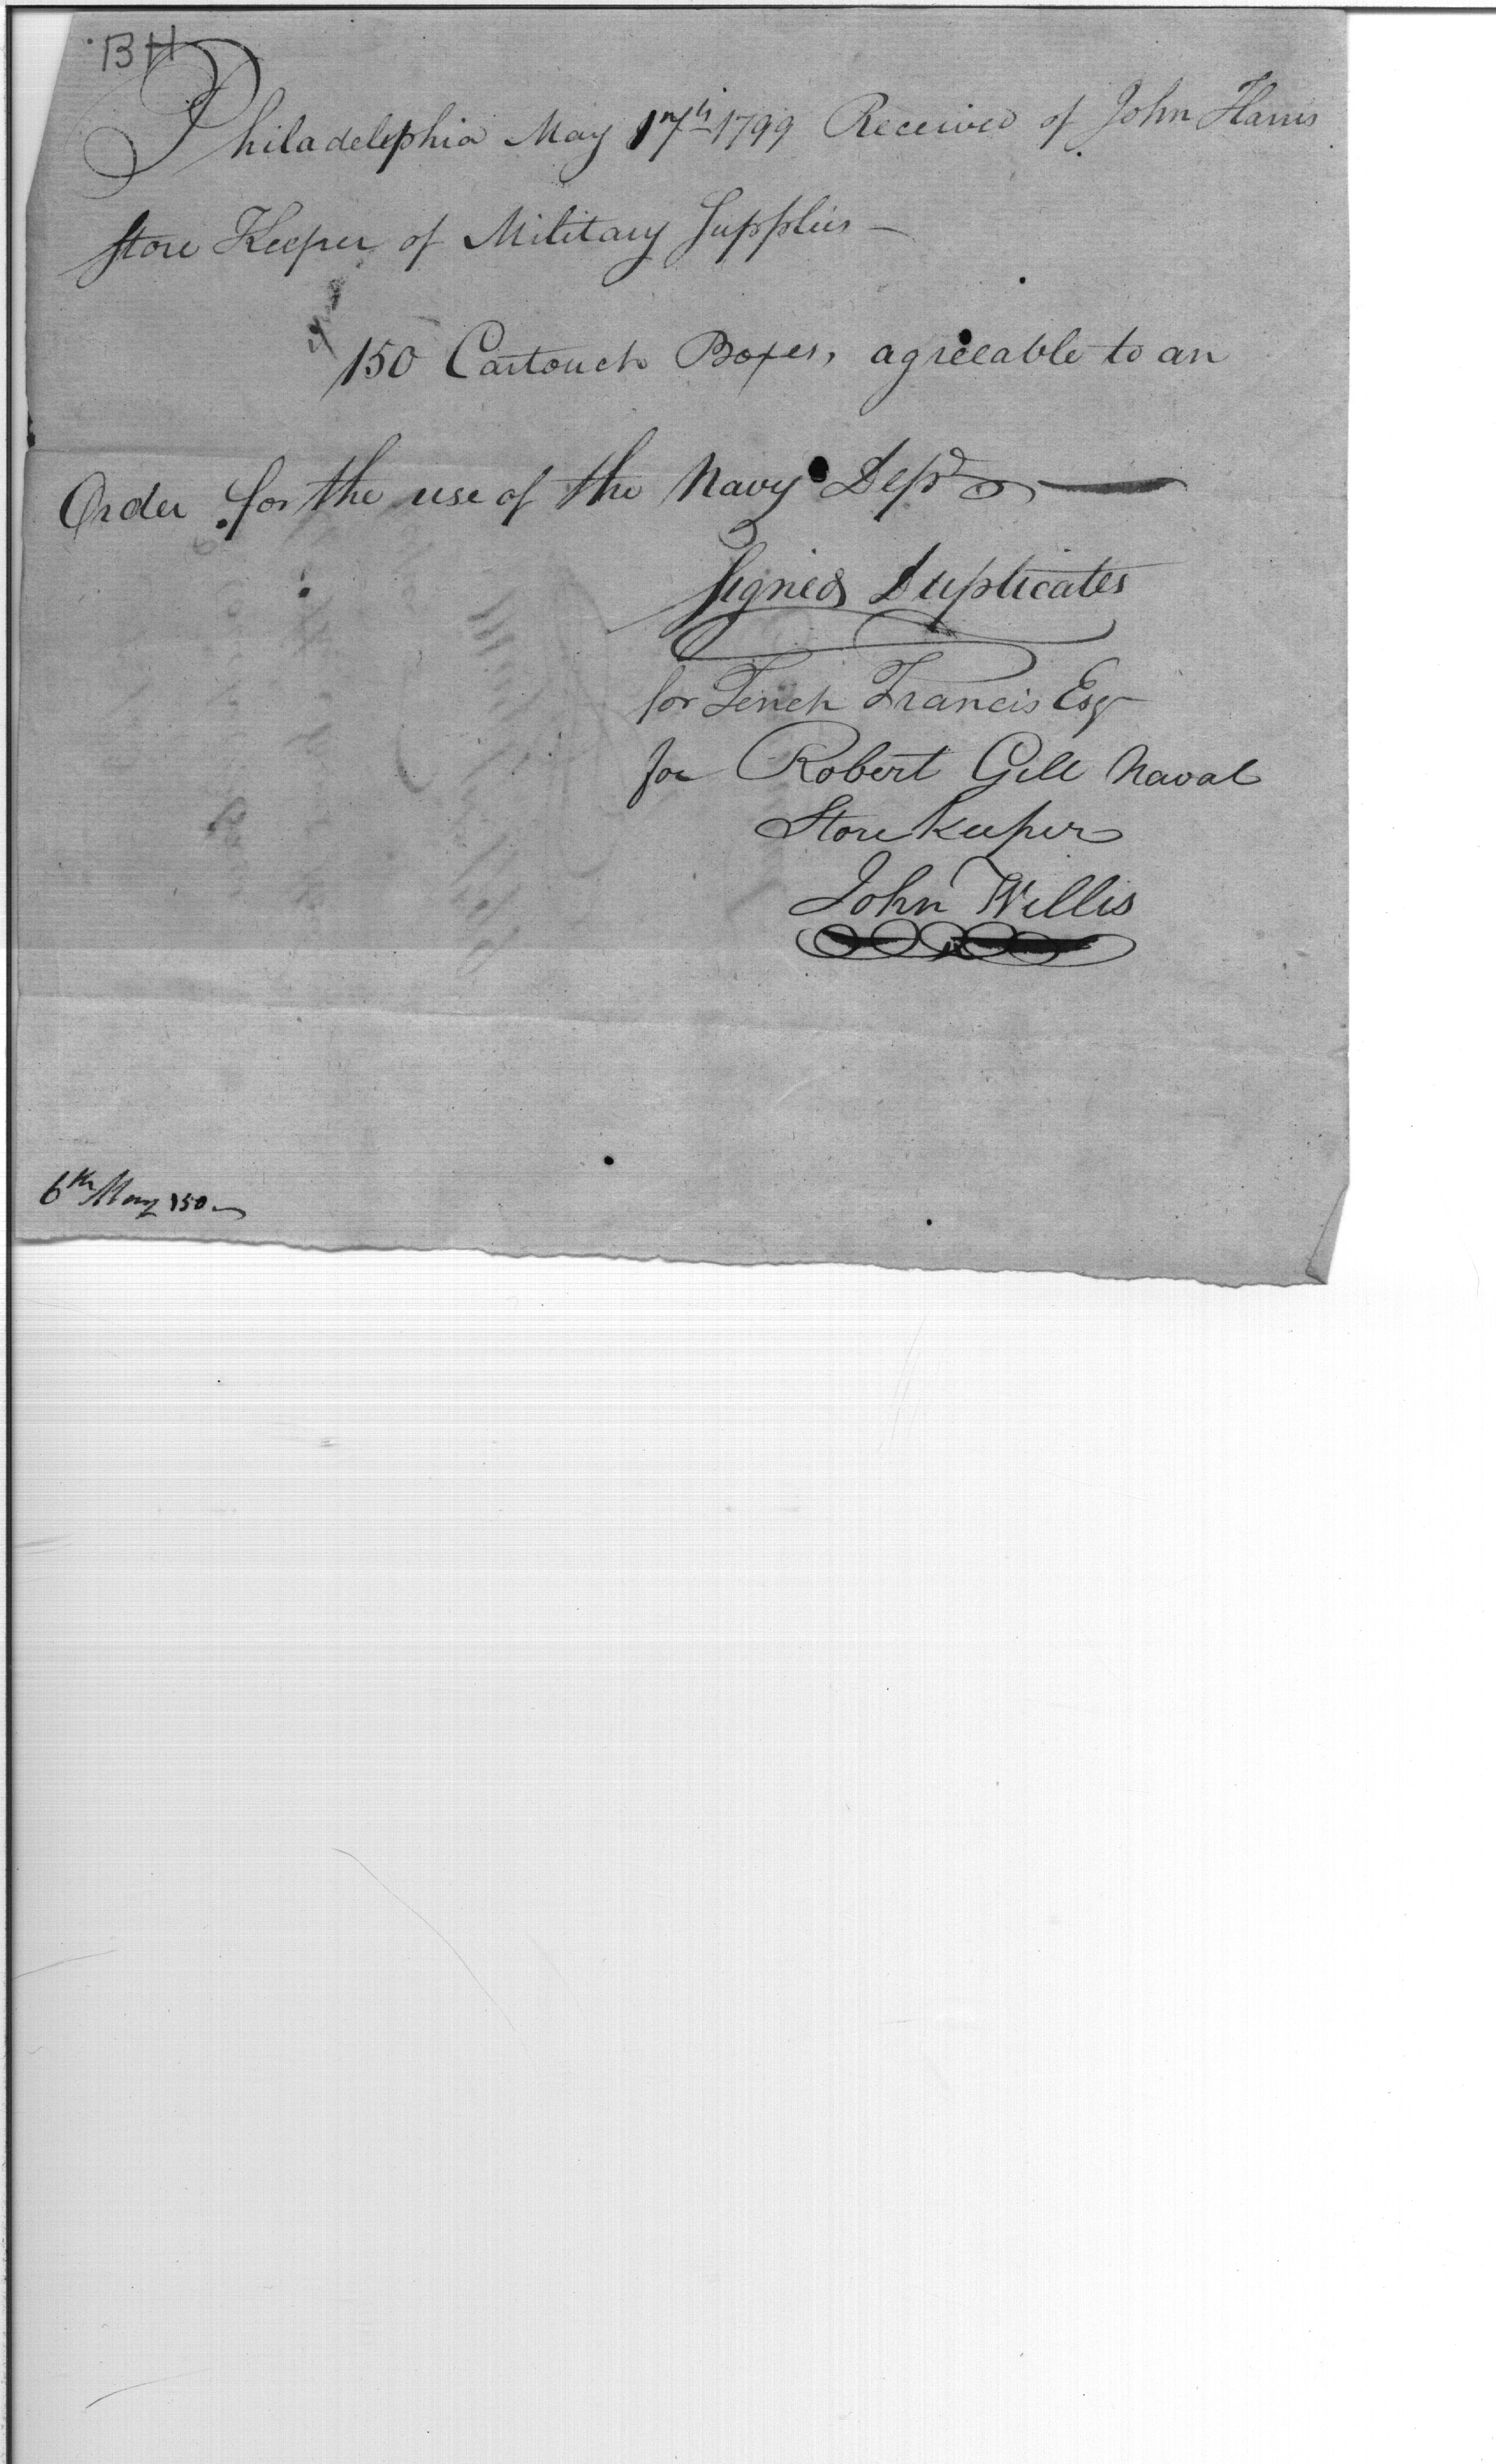 BH
Philadelphia May 17th 1799 Received of John Harris
Store Keeper of Military Supplies —
150 Cartouch Boxes, agreeable to an
Order for the use of the Navy Dept —
Signed Duplicates
for Tench Francis Esqr
for Robert Gill Naval
Store Keeper
John Willis
6th May 150 —